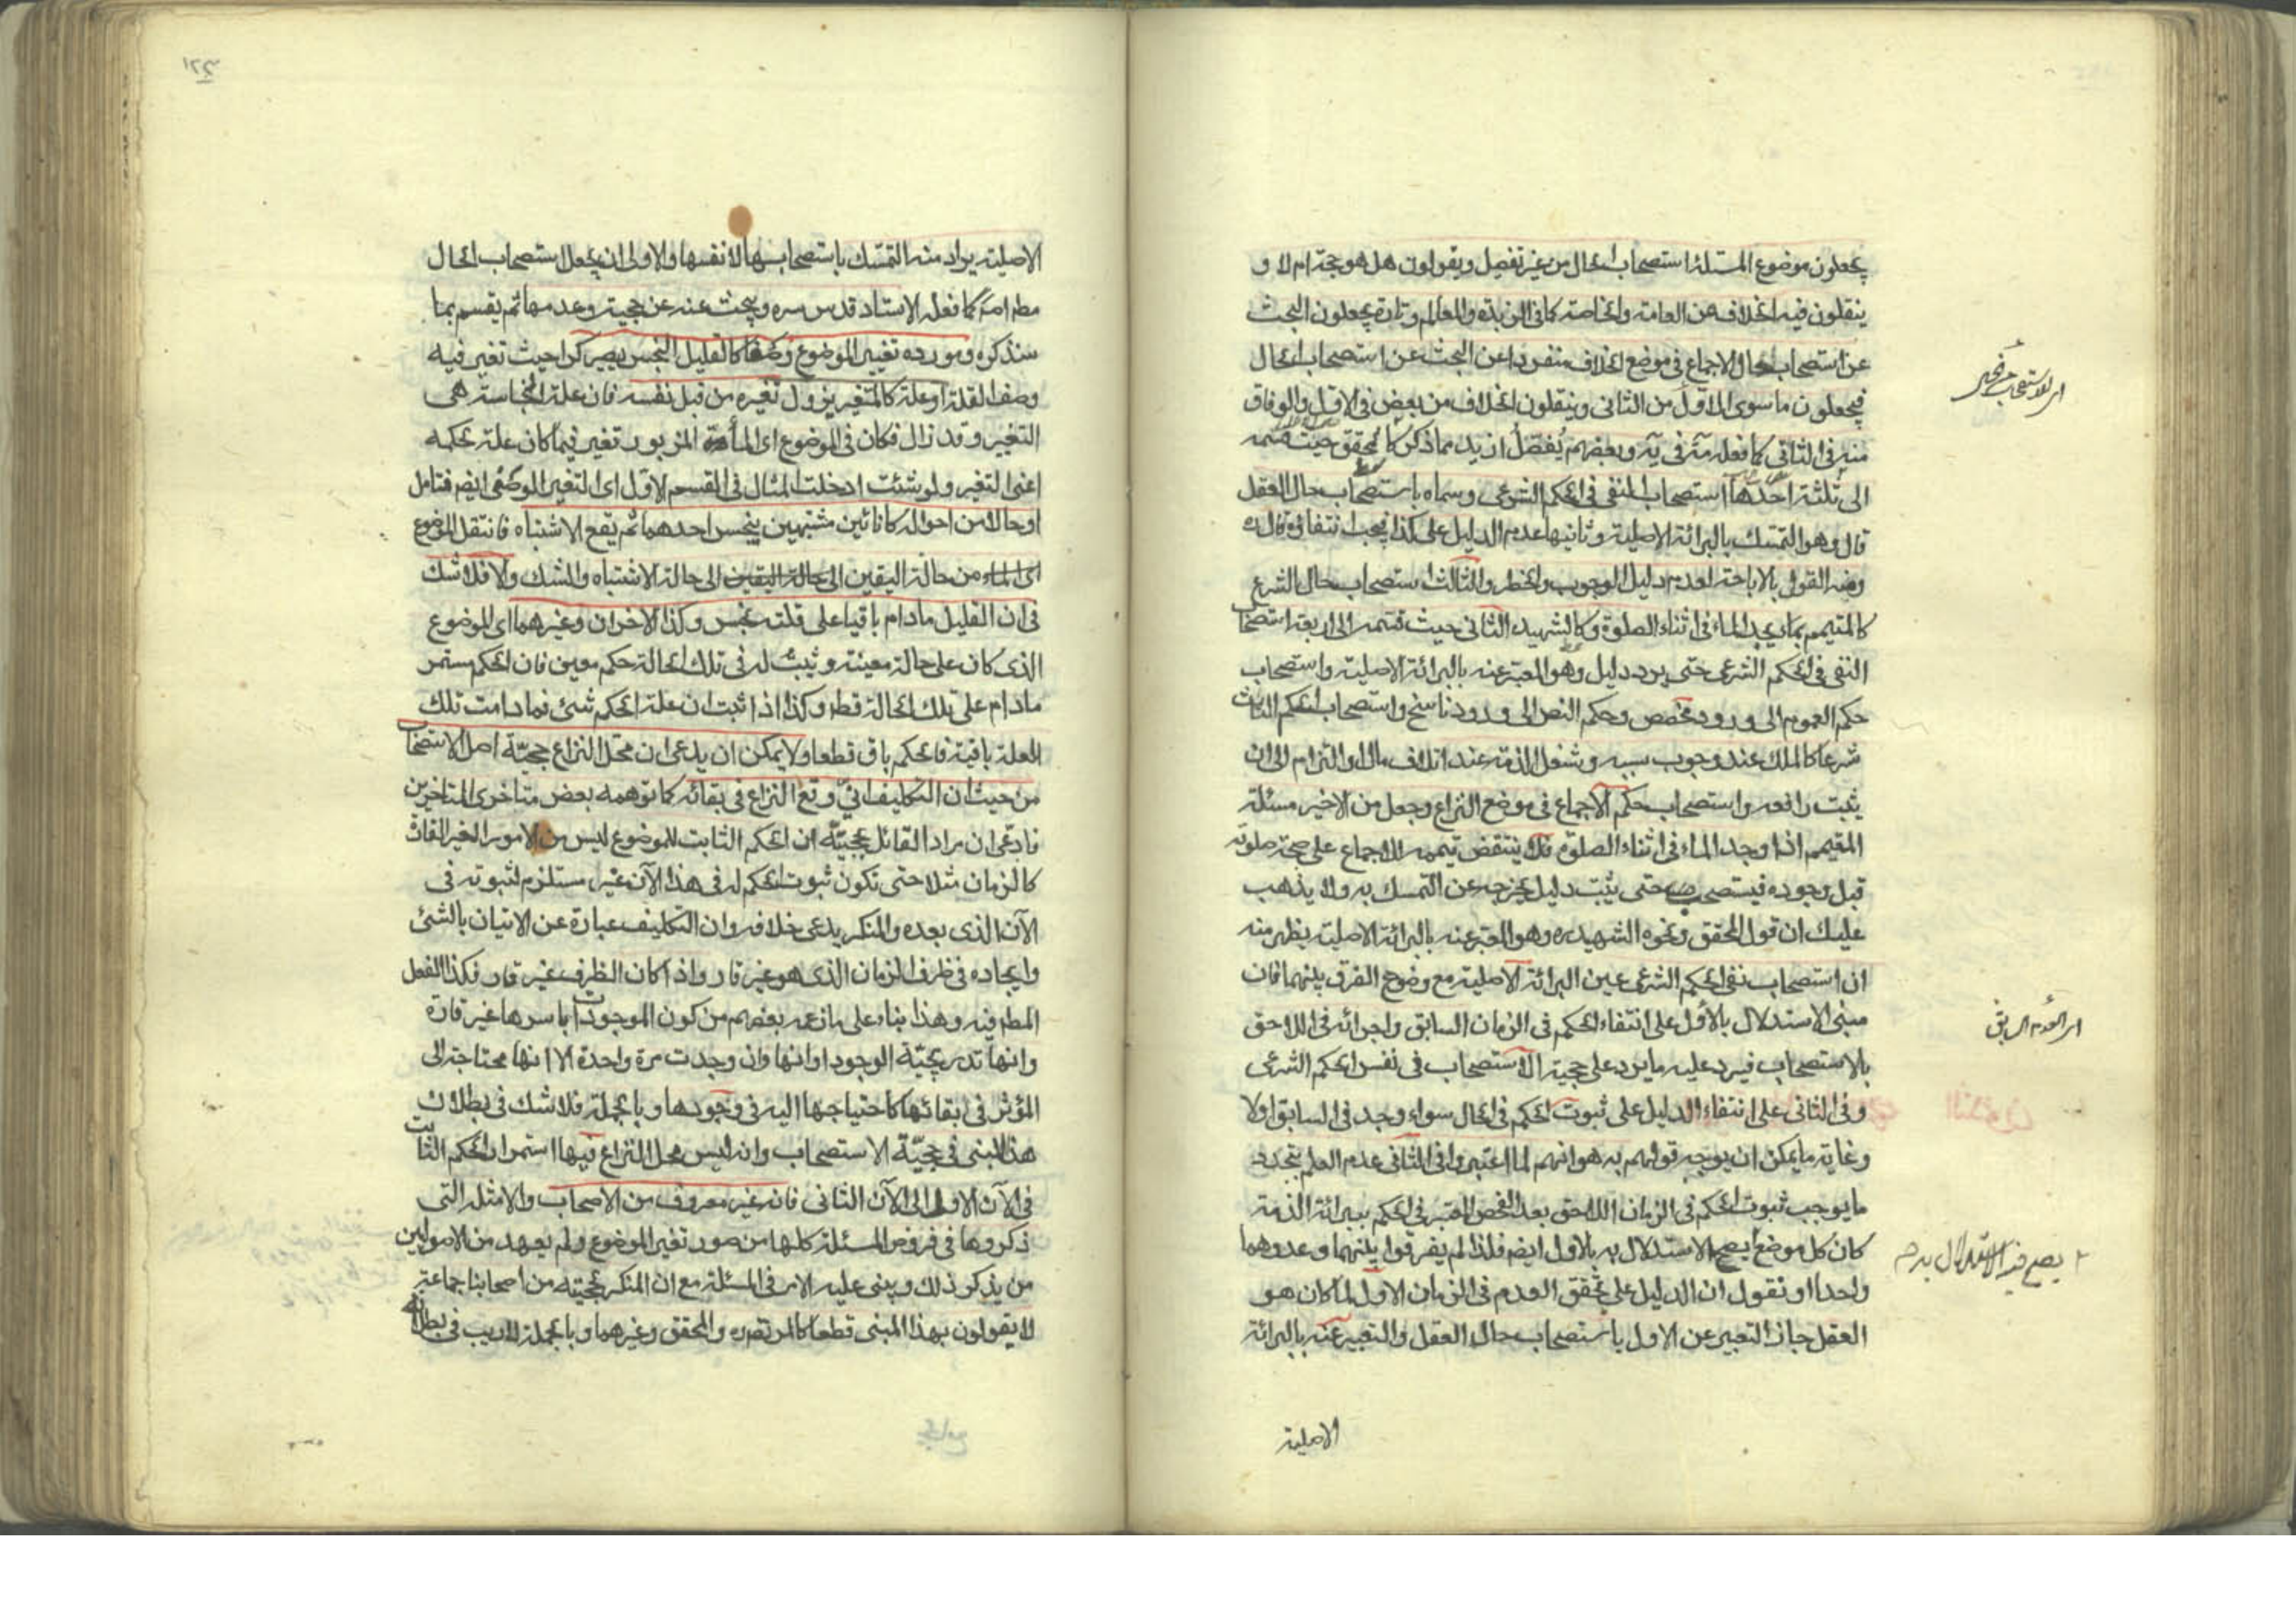 يجعلون موضوع المسئلة استصحاب الحال من غير تفصيل ويقولون هل هو حجة ام لا و
ينقلون فيه الخلاف من العامة والخاصة كما فى الزبدة والمعالم وتارة يجعلون البحث
عن استصحاب حال الاجماع فى موضع الخلاف منفردا عن البحث عن استصحاب الحال
فيجعلون ما سوى الاول من الثانى وينقلون الخلاف من بعض فى الاول والوفاق
منه فى الثانى كما فعله مة فى يه وبعضهم يفصل ازيد مما ذكر كالمحقق حيث قسمه
الى ثلثة احدها استصحاب النفى فى الحكم الشرعى وسماه باستصحاب حال العقل
قال وهو التمسك بالبرائة الاصلية وثانيها عدم الدليل على كذا فيجب انتفاؤه قال ره
ومنه القول بالاباحة لعدم دليل الوجوب والحظر والثالث استصحاب حال الشرع
كالمتيمم يجد الماء فى اثناء الصلوة وكالشهيد الثانى حيث قسمه الى اربعة استصحاب
النفى فى الحكم الشرعى حتى يرد دليل وهو المعبر عنه بالبرائة الاصلية واستصحاب
حكم العموم الى ورود مخصص وحكم النص الى ورود ناسخ واستصحاب الحكم الثابت
شرعا كالملك عند وجوب سببه وشغل الذمة عند اتلاف مال او التزام الى ان
يثبت رافعه واستصحاب حكم الاجماع فى موضع النزاع وجعل من الاخير مسئلة
المتيمم اذا وجد الماء فى اثناء الصلوة ينتقض تيممه للاجماع على صحة صلوته
قبل وجوده فيستصحب حتى يثبت دليل يخرجه عن التمسك به ولا يذهب
عليك ان قول المحقق ونحوه الشهيد ره وهو المعبر عنه بالبرائة الاصلية يظهر منه
ان استصحاب نفى الحكم الشرعى عين البرائة الاصلية مع وضوح الفرق بينهما فان
مبنى الاستدلال بالاول على انتفاء الحكم فى الزمان السابق واجرائه فى اللاحق
بالاستصحاب فيرد عليه ما يرد على حجية الاستصحاب فى نفس الحكم الشرعى
وفى الثانى على انتفاء الدليل على ثبوت الحكم فى الحال سواء وجد فى السابق اولا
وغاية ما يمكن ان يوجه قولهم به هو انهم لما اعتبروا فى الثانى عدم العلم بتجدد
ما يوجب ثبوت الحكم فى الزمان اللاحق بعد الفحص المعتبر فى الحكم ببرائة الذمة
كان كل موضع يصح الاستدلال به بالاول ايضم فلذا لم يفرقوا بينهما وعدوهما
واحدا او نقول ان الدليل على تحقق العدم فى الزمان الاول لما كان هو
العقل جاز التعبير عن الاول باستصحاب حال العقل والتعبير عنه بالبرائة
الاصلية
يصح فيه الاستدلال به
الاصلية يراد منه التمسك باستصحابها لا نفسها والاولى ان يجعل استصحاب الحال
كما فعله الاستاد قدس سره ويبحث عنه عن حجيته وعدمها ثم يقسم بما
سنذكره ومورده تغيير الموضوع وصفا كالقليل النجس يصير كرا حيث تغير فيه
وصف القلة او علة كالمتغير يزول تغيره من قبل نفسه فان علة النجاسة هى
التغير وقد زال فكان فى الموضوع اى الماء المزبور تغير فيما كان علة لحكمه
اعنى التغير ولو شئت ادخلت المثال فى القسم الاول اى التغير الوصفى ايضم فتامل
او حالا من احواله كانائين مشتبهين ينجس احدهما ثم يقع الاشتباه فانتقل الموضوع
اى الماء من حالة اليقين الى حالة اليقين الى حالة الاشتباه والشك والا فلا شك
فى ان القليل ما دام باقيا على قلته نجس وكذا الاخران وغيرهما اى الموضوع
الذى كان على حالة معينة وثبت له فى تلك الحالة حكم معين فان الحكم مستمر
ما دام على تلك الحالة قطعا وكذا اذا ثبت ان علة الحكم شئ فما دامت تلك
العلة باقية فالحكم باق قطعا ولا يمكن ان يدعى ان محل النزاع حجية اصل الاستصحاب
من حيث ان التكليف الآنى وقع النزاع فى بقائه كما توهمه بعض متاخرى المتاخرين
فادعى ان مراد القائل بحجيته ان الحكم الثابت للموضوع ليس من الامور الغير القارة
كالزمان مثلا حتى تكون ثبوت الحكم له فى هذا الآن غير مستلزم لثبوته فى
الآن الذى بعده والمنكر يدعى خلافه وان التكليف عبارة عن الاتيان بالشئ
وايجاده فى ظرف الزمان الذى هو غير قار واذا كان الظرف غير قار فكذا الفعل
المظروف فيه وهذا بناء على ما زعمه بعضهم من كون الموجودات باسرها غير قارة
وانها تدريجية الوجود او انها وان وجدت مرة واحدة الا انها محتاجة الى
المؤثر فى بقائها كاحتياجها اليه فى وجودها وبالجملة فلا شك فى بطلان
هذا المبنى فى حجية الاستصحاب وانه ليس محل النزاع فيها استمرار الحكم الثابت
فى الآن الاول الى الآن الثانى فانه غير معروف من الاصحاب والامثلة التى
ذكروها فى فروض المسئلة كلها من صور تغير الموضوع ولم يعهد من الاصوليين
من يذكر ذلك ويبنى عليه الامر فى المسئلة مع ان المنكر لحجيته من اصحابنا جماعة
لا يقولون بهذا المبنى قطعا كالمرتضى ره والمحقق وغيرهما وبالجملة لا ريب فى بطلانه